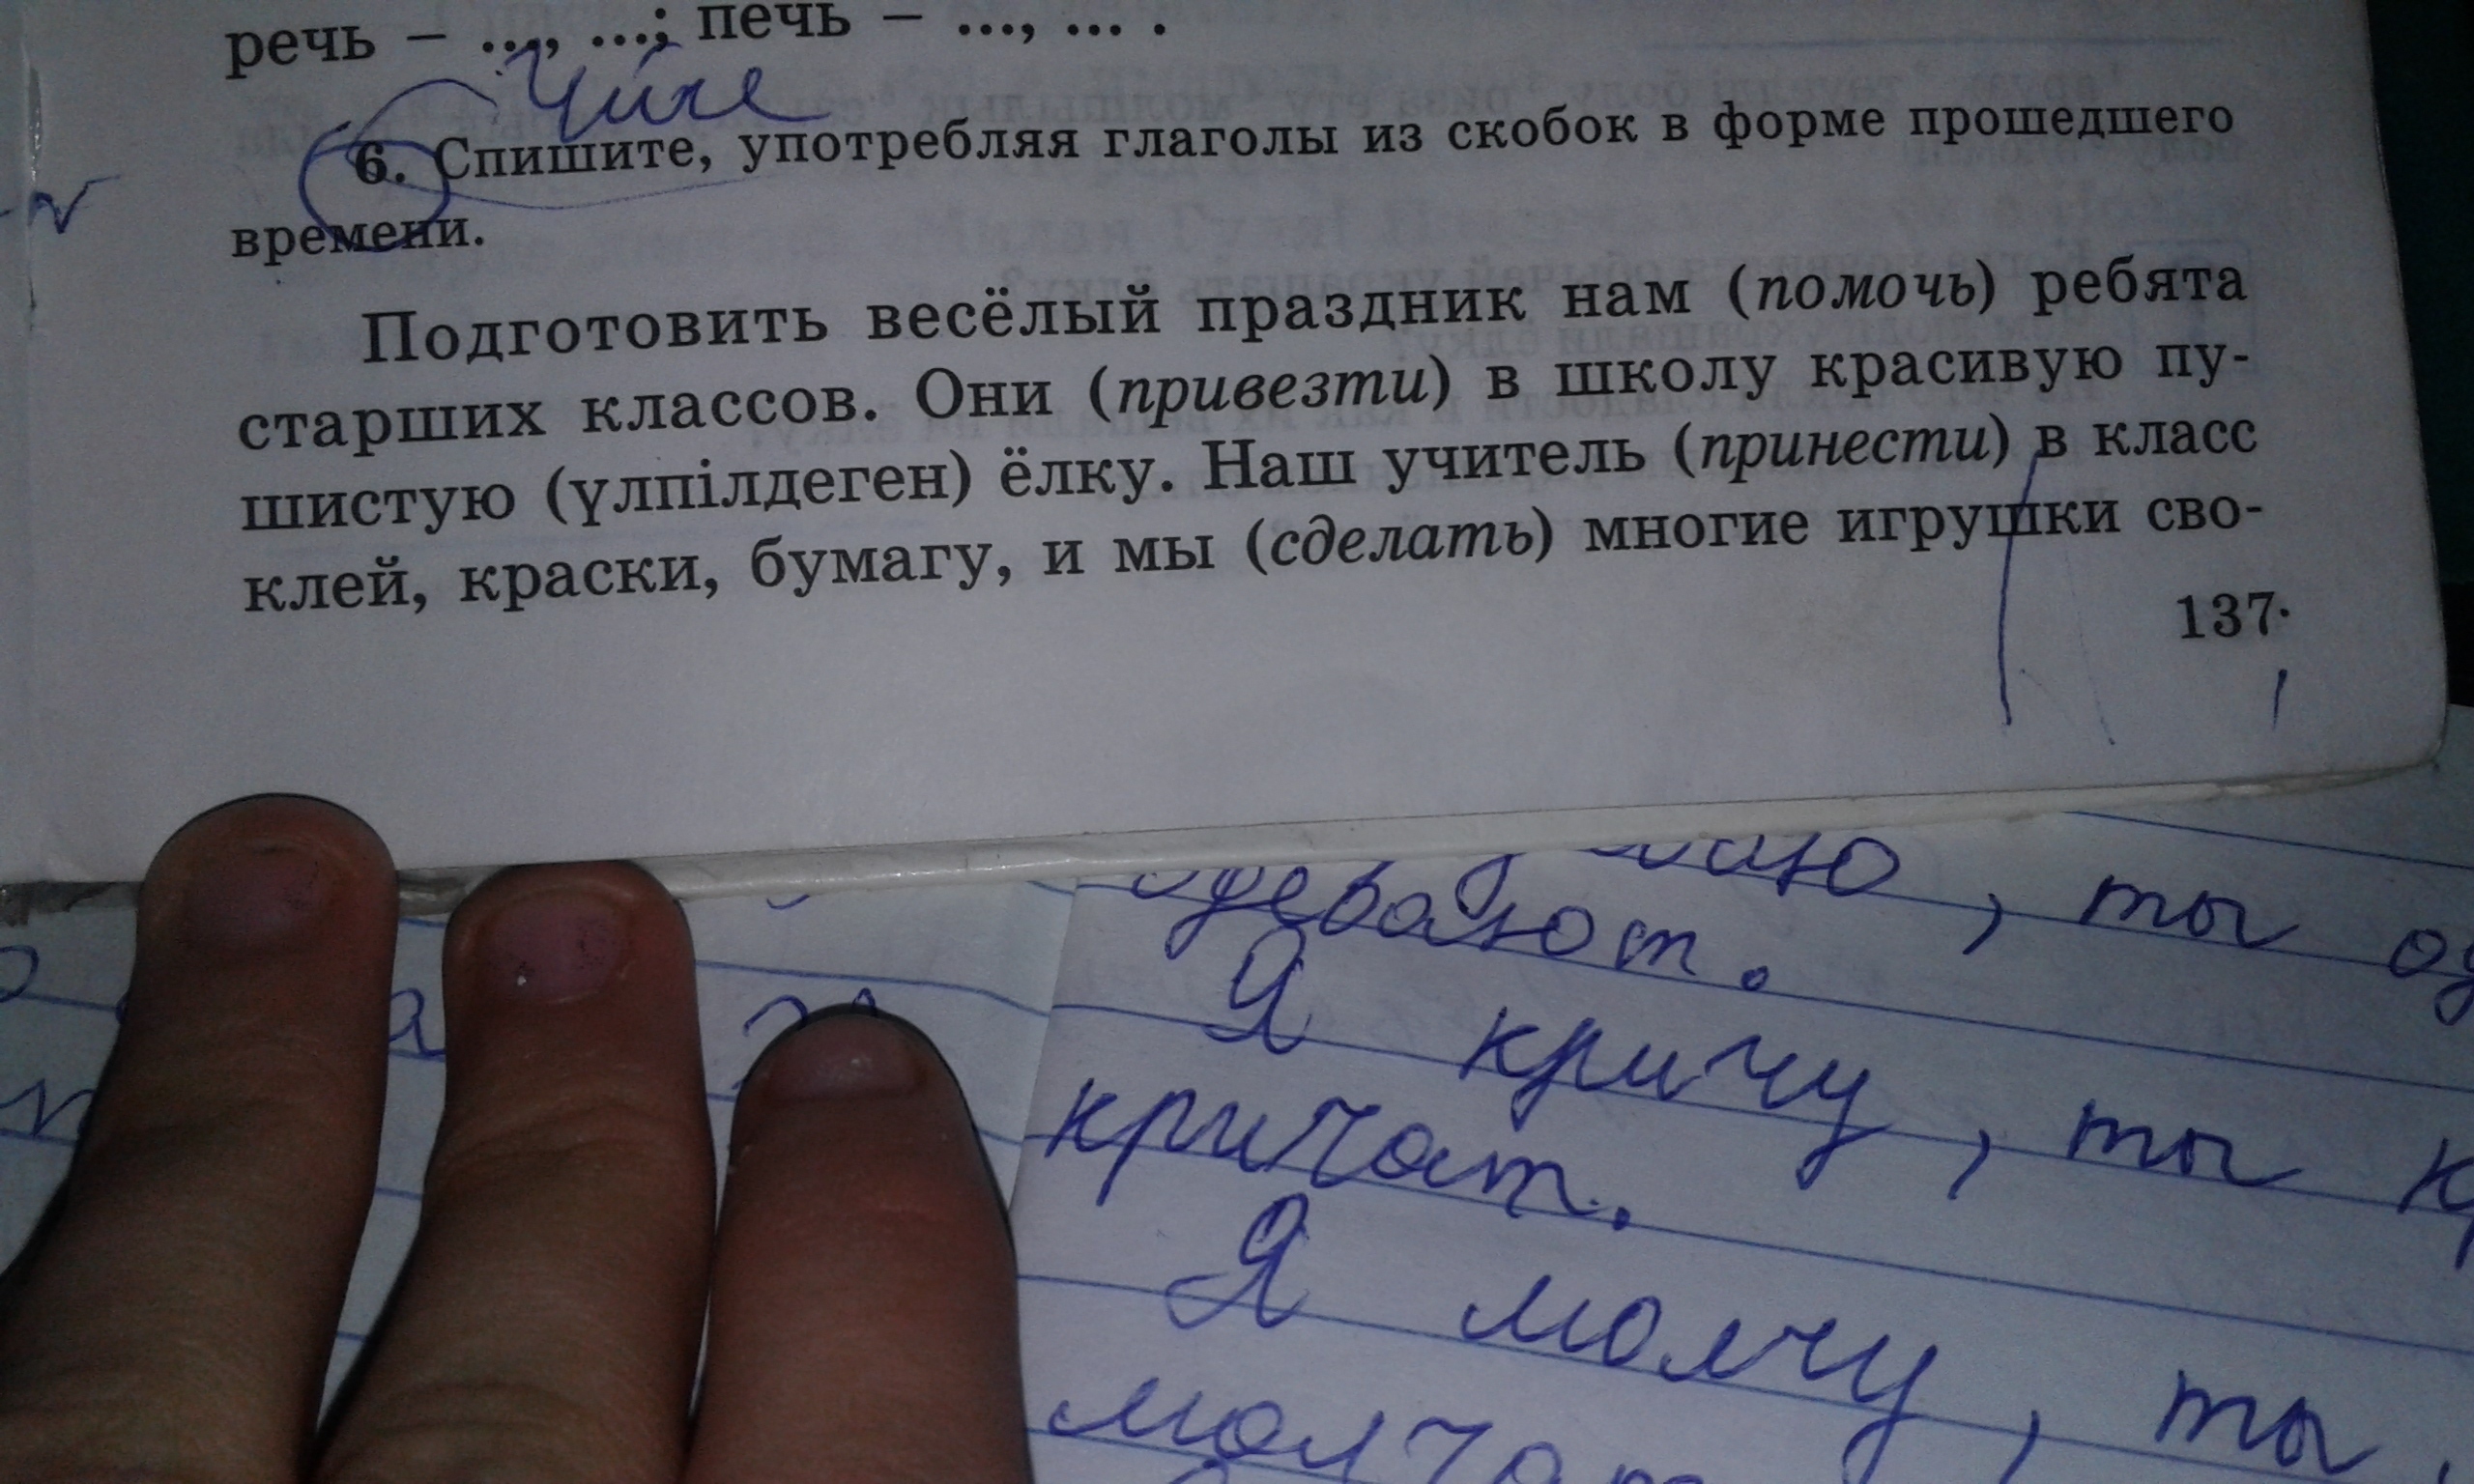 речь – ..., ...; печь – ..., ... .
6. Спишите, употребляя глаголы из скобок в форме прошедшего
времени.
Подготовить весёлый праздник нам (помочь) ребята
старших классов. Они (привезти) в школу красивую пу-
шистую (үлпілдеген) ёлку. Наш учитель (принести) в класс
клей, краски, бумагу, и мы (сделать) многие игрушки сво-
137
, ты
одевают.
Я кричу, ты
кричат.
Я молчу, ты